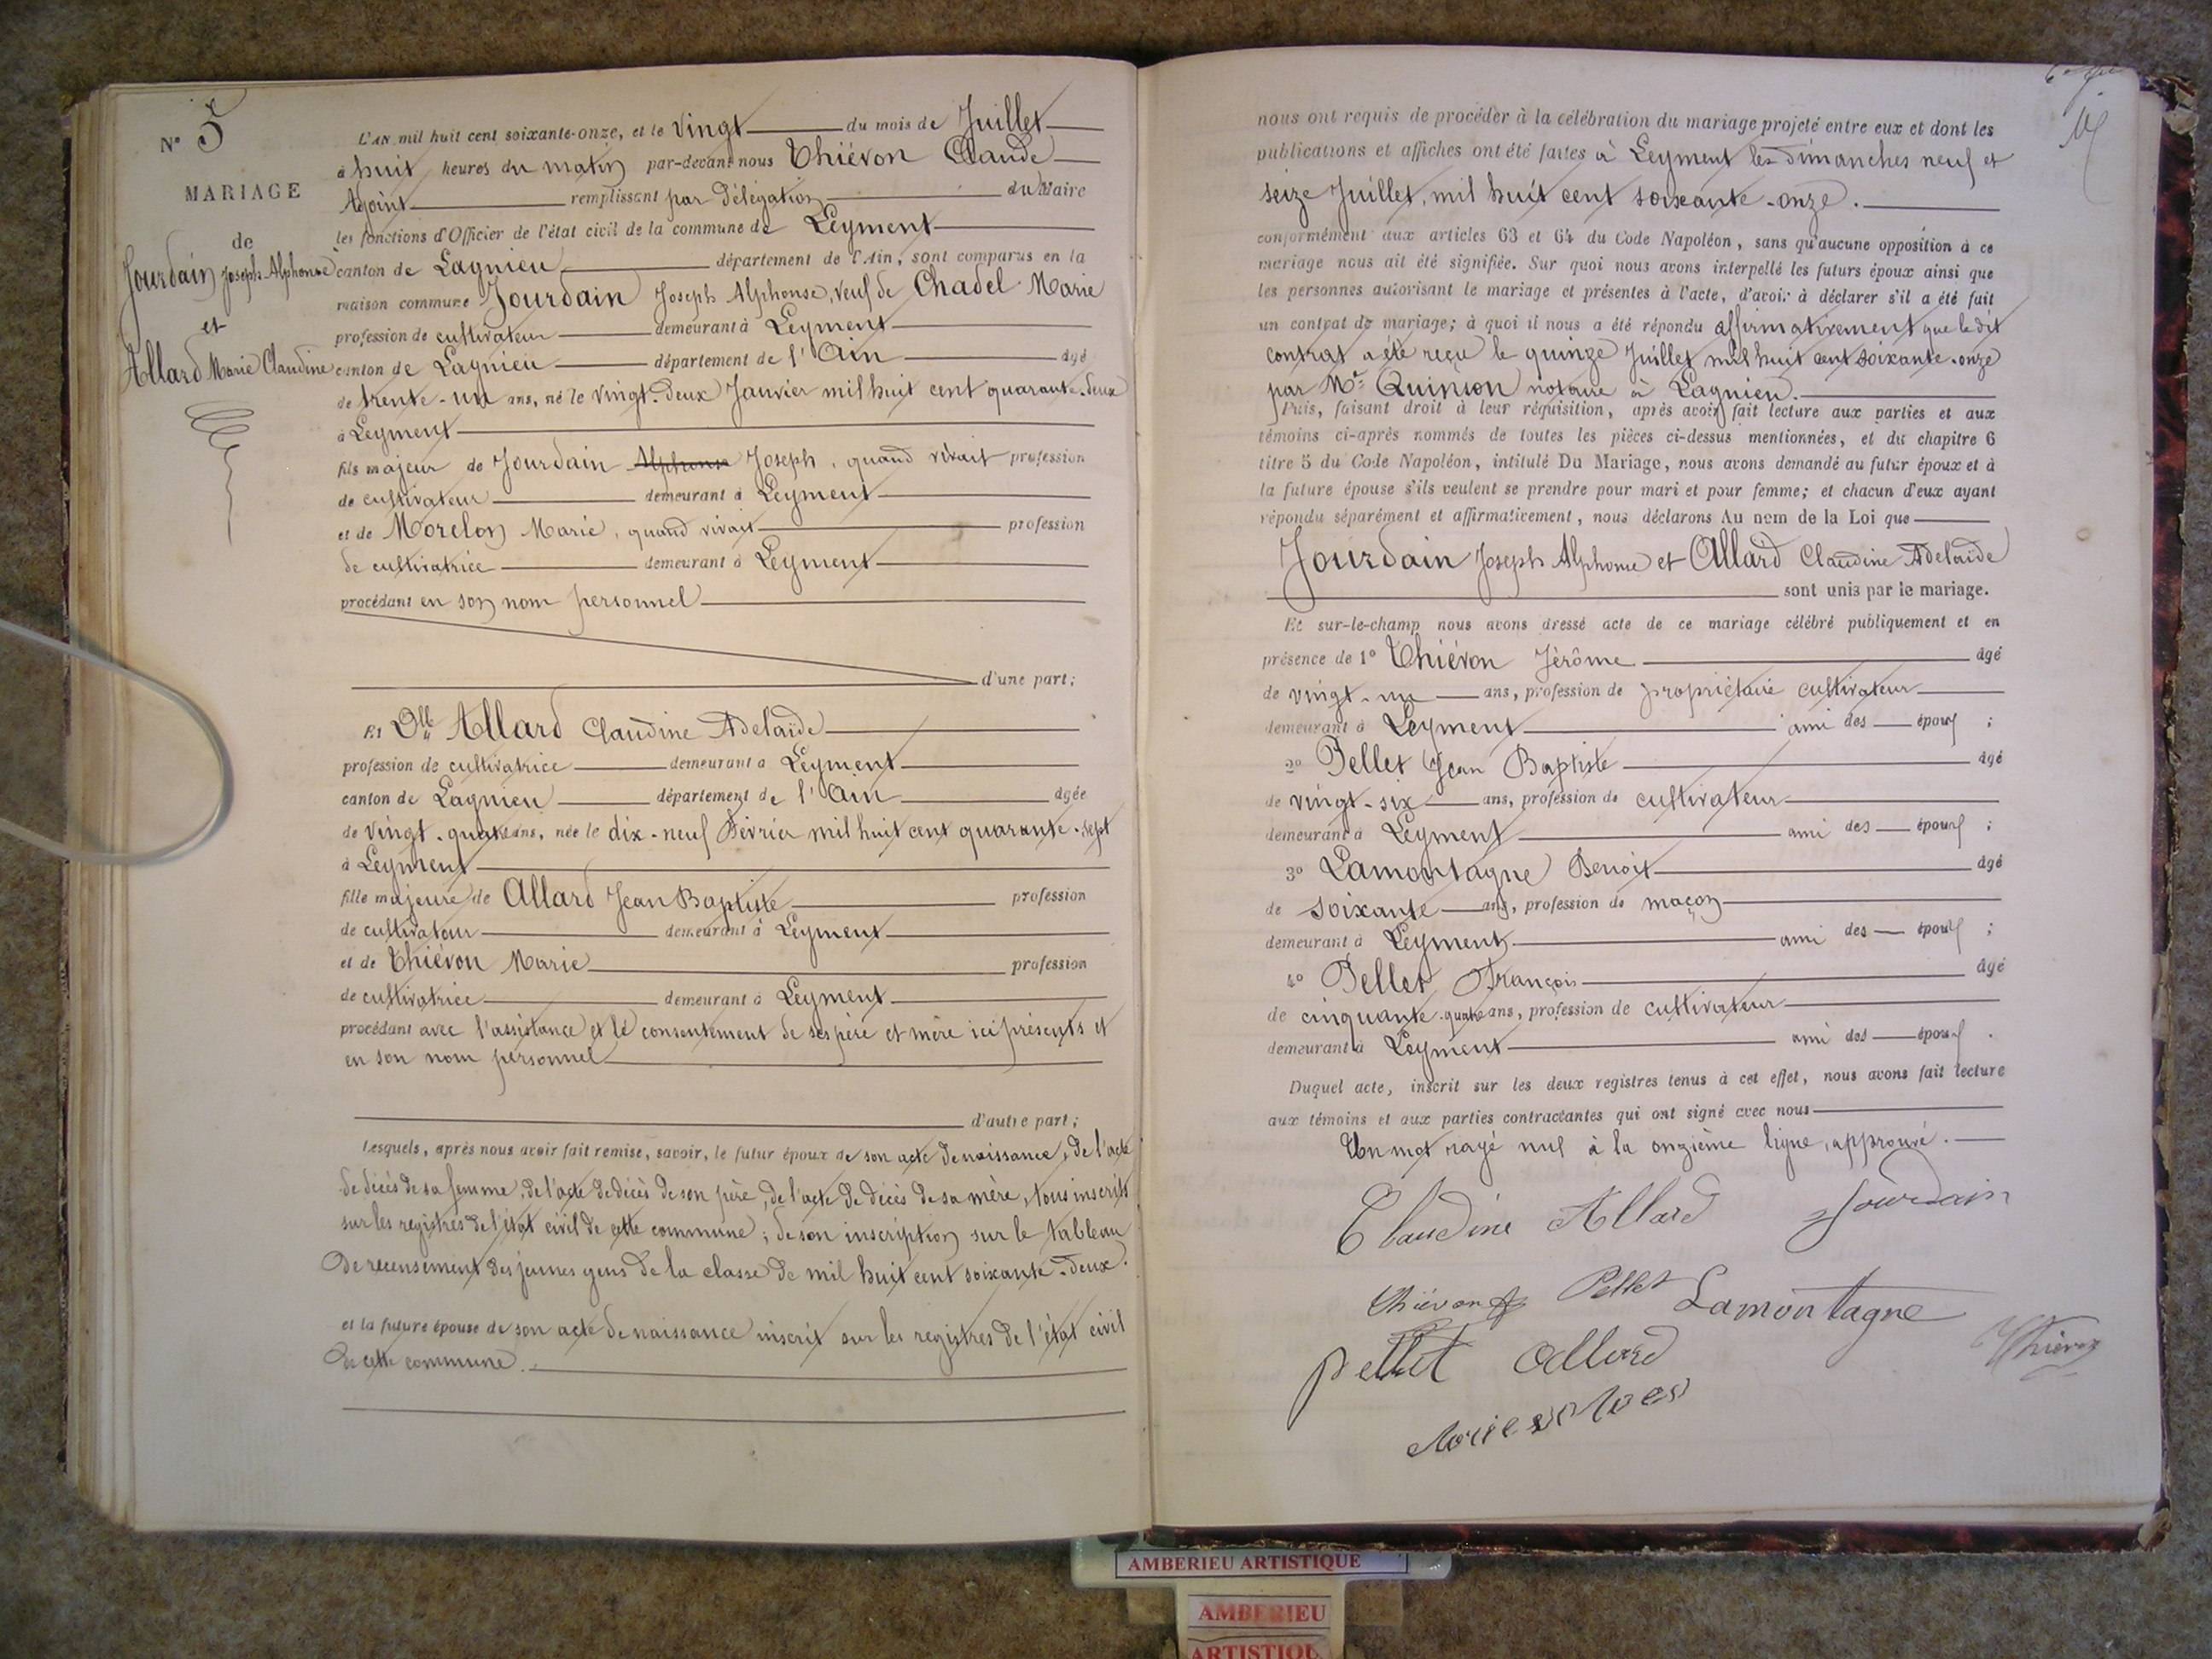 N° 5
MARIAGE
de
Jourdain Joseph-Alphonse
et
Allard Marie Claudine
L'AN mil huit cent soixante-onze, et le vingt du mois de Juillet
à huit heures du matin par-devant nous Thiévon Claude
Adjoint remplissant par délégation du Maire
les fonctions d'Officier de l'état civil de la commune de Leyment
canton de Lagnieu département de l'Ain, sont comparus en la
maison commune Jourdain Joseph Alphonse, veuf de Chadel Marie
profession de cultivateur demeurant à Leyment
canton de Lagnieu département de l'Ain âgé
de trente-un ans, né le vingt-deux Janvier mil huit cent quarante-deux
à Leyment
fils majeur de Jourdain Alphonse Joseph, quand vivait profession
de cultivateur demeurant à Leyment
et de Morelon Marie, quand vivait profession
de cultivatrice demeurant à Leyment
procédant en son nom personnel
d'une part;
Et Dlle Allard Claudine Adelaïde
profession de cultivatrice demeurant à Leyment
canton de Lagnieu département de l'Ain âgée
de vingt-quatre ans, née le dix-neuf Février mil huit cent quarante-sept
à Leyment
fille majeure de Allard Jean Baptiste profession
de cultivateur demeurant à Leyment
et de Thiévon Marie profession
de cultivatrice demeurant à Leyment
procédant avec l'assistance et le consentement de ses père et mère ici présents et
en son nom personnel
d'autre part;
Lesquels, après nous avoir fait remise, savoir, le futur époux de son acte de naissance, de l'acte
de décès de sa femme, de l'acte de décès de son père, de l'acte de décès de sa mère, tous inscrits
sur les registres de l'état civil de cette commune; de son inscription sur le tableau
de recensement des jeunes gens de la classe de mil huit cent soixante-deux.
et la future épouse de son acte de naissance inscrit sur les registres de l'état civil
de cette commune.
nous ont requis de procéder à la célébration du mariage projeté entre eux et dont les
publications et affiches ont été faites à Leyment les dimanches neuf et
seize Juillet, mil huit cent soixante-onze.
conformément aux articles 63 et 64 du Code Napoléon, sans qu'aucune opposition à ce
mariage nous ait été signifiée. Sur quoi nous avons interpellé les futurs époux ainsi que
les personnes autorisant le mariage et présentes à l'acte, d'avoir à déclarer s'il a été fait
un contrat de mariage; à quoi il nous a été répondu affirmativement que le dit
contrat a été reçu le quinze Juillet mil huit cent soixante-onze
par Me Quinson notaire à Lagnieu.
Puis, faisant droit à leur réquisition, après avoir fait lecture aux parties et aux
témoins ci-après nommés de toutes les pièces ci-dessus mentionnées, et du chapitre 6
titre 5 du Code Napoléon, intitulé Du Mariage, nous avons demandé au futur époux et à
la future épouse s'ils veulent se prendre pour mari et pour femme; et chacun d'eux ayant
répondu séparément et affirmativement, nous déclarons Au nom de la Loi que
Jourdain Joseph Alphonse et Allard Claudine Adelaïde
sont unis par le mariage.
Et sur-le-champ nous avons dressé acte de ce mariage célébré publiquement et en
présence de 1° Thiévon Jérôme âgé
de vingt-un ans, profession de propriétaire cultivateur
demeurant à Leyment ami des époux;
2° Pellet Jean Baptiste âgé
de vingt-six ans, profession de cultivateur
demeurant à Leyment ami des époux;
3° Lamontagne Benoît âgé
de soixante ans, profession de maçon
demeurant à Leyment ami des époux;
4° Pellet François âgé
de cinquante-quatre ans, profession de cultivateur
demeurant à Leyment ami des époux.
Duquel acte, inscrit sur les deux registres tenus à cet effet, nous avons fait lecture
aux témoins et aux parties contractantes qui ont signé avec nous
Un mot rayé nul à la onzième ligne, approuvé.
Claudine Allard Jourdain
Thiévon Pellet Lamontagne
Pellet Allard Thiévon
AMBERIEU ARTISTIQUE
AMBERIEU
ARTISTIQU